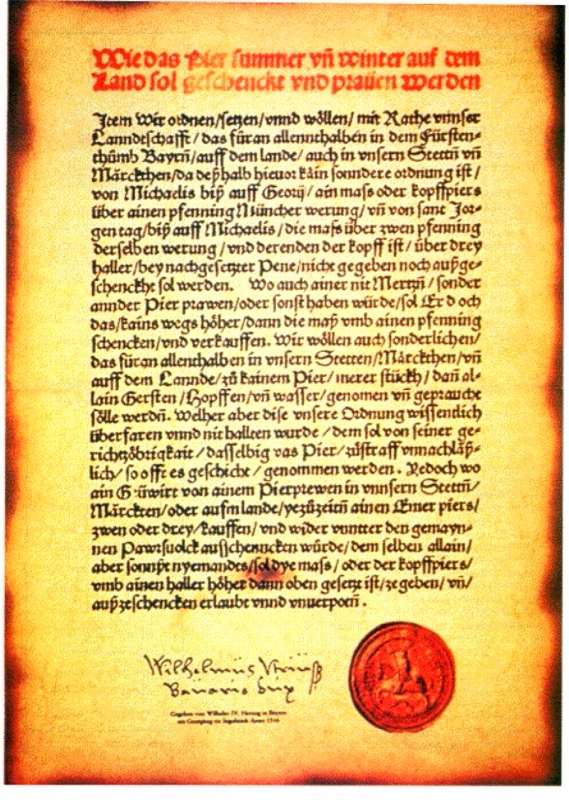 Wie das Pier summer vñ winter auf dem
Land sol geschenckt vnd prauen werden
Item Wir ordnen/setzen/vnnd wöllen/ mit Rathe vnnser
Lanndtschafft/das füran allennthalben in dem Fürsten-
thůmb Bayrñ/auff dem lande/auch in vnsern Stettñ vñ
Märckthen/da deßhalb hieuor kain sonndere ordnung ist/
von Michaelis biß auff Georij/ain mass oder kopffpiers
über ainen pfenning Müncher werung/vñ von sant Jor-
gen tag/biß auff Michaelis/die mass über zwen pfenning
derselben werung/vnd derenden der kopff ist/über drey
haller/bey nachgesetzter Pene/nicht gegeben noch außge-
schenckht sol werden. Wo auch ainer nit Mertzñ/sonder
annder Pier prawen/oder sonst haben würde/sol Er doch
das/kains wegs höher/dann die maß vmb ainen pfenning
schencken/vnd verkauffen. Wir wöllen auch sonderlichen/
das füran allenthalben in vnsern Stetten/Märckthen/vñ
auff dem Lannde/zů kainem Pier/merer stückh/dañ al-
lain Gersten/Hopffen/vñ wasser/genomen vñ geprauche
sölle werdñ. Welher aber dise vnsere Ordnung wissentlich
überfaren vnnd nit hallten wurde/dem sol von seiner ge-
richtzöbrigkait/dasselbig vas Pier/zůstraff vnnachläß-
lich/so offt es geschicht/genommen werden. Yedoch wo
ain Güwirt von ainem Pierprewen in vnnsern Stettñ/
Märckten/oder aufm lande/yezůzeitñ ainen Emer piers/
zwen oder drey/kauffen/vnd wider vnnter den gemayn-
nen Pawrsuolck ausschenncken würde/dem selben allain/
aber sonnßt nyemandes/sol dye mass/oder der kopffpiers/
vmb ainen haller höher dann oben gesetzt ist/zegeben/vñ/
außzeschencken erlaubt vnnd vnuerpotñ.
Wilhelmus
Bavarie Dux
Gegeben von Wilhelm IV. Herzog in Bayern
am Georgitag zu Ingolstadt Anno 1516